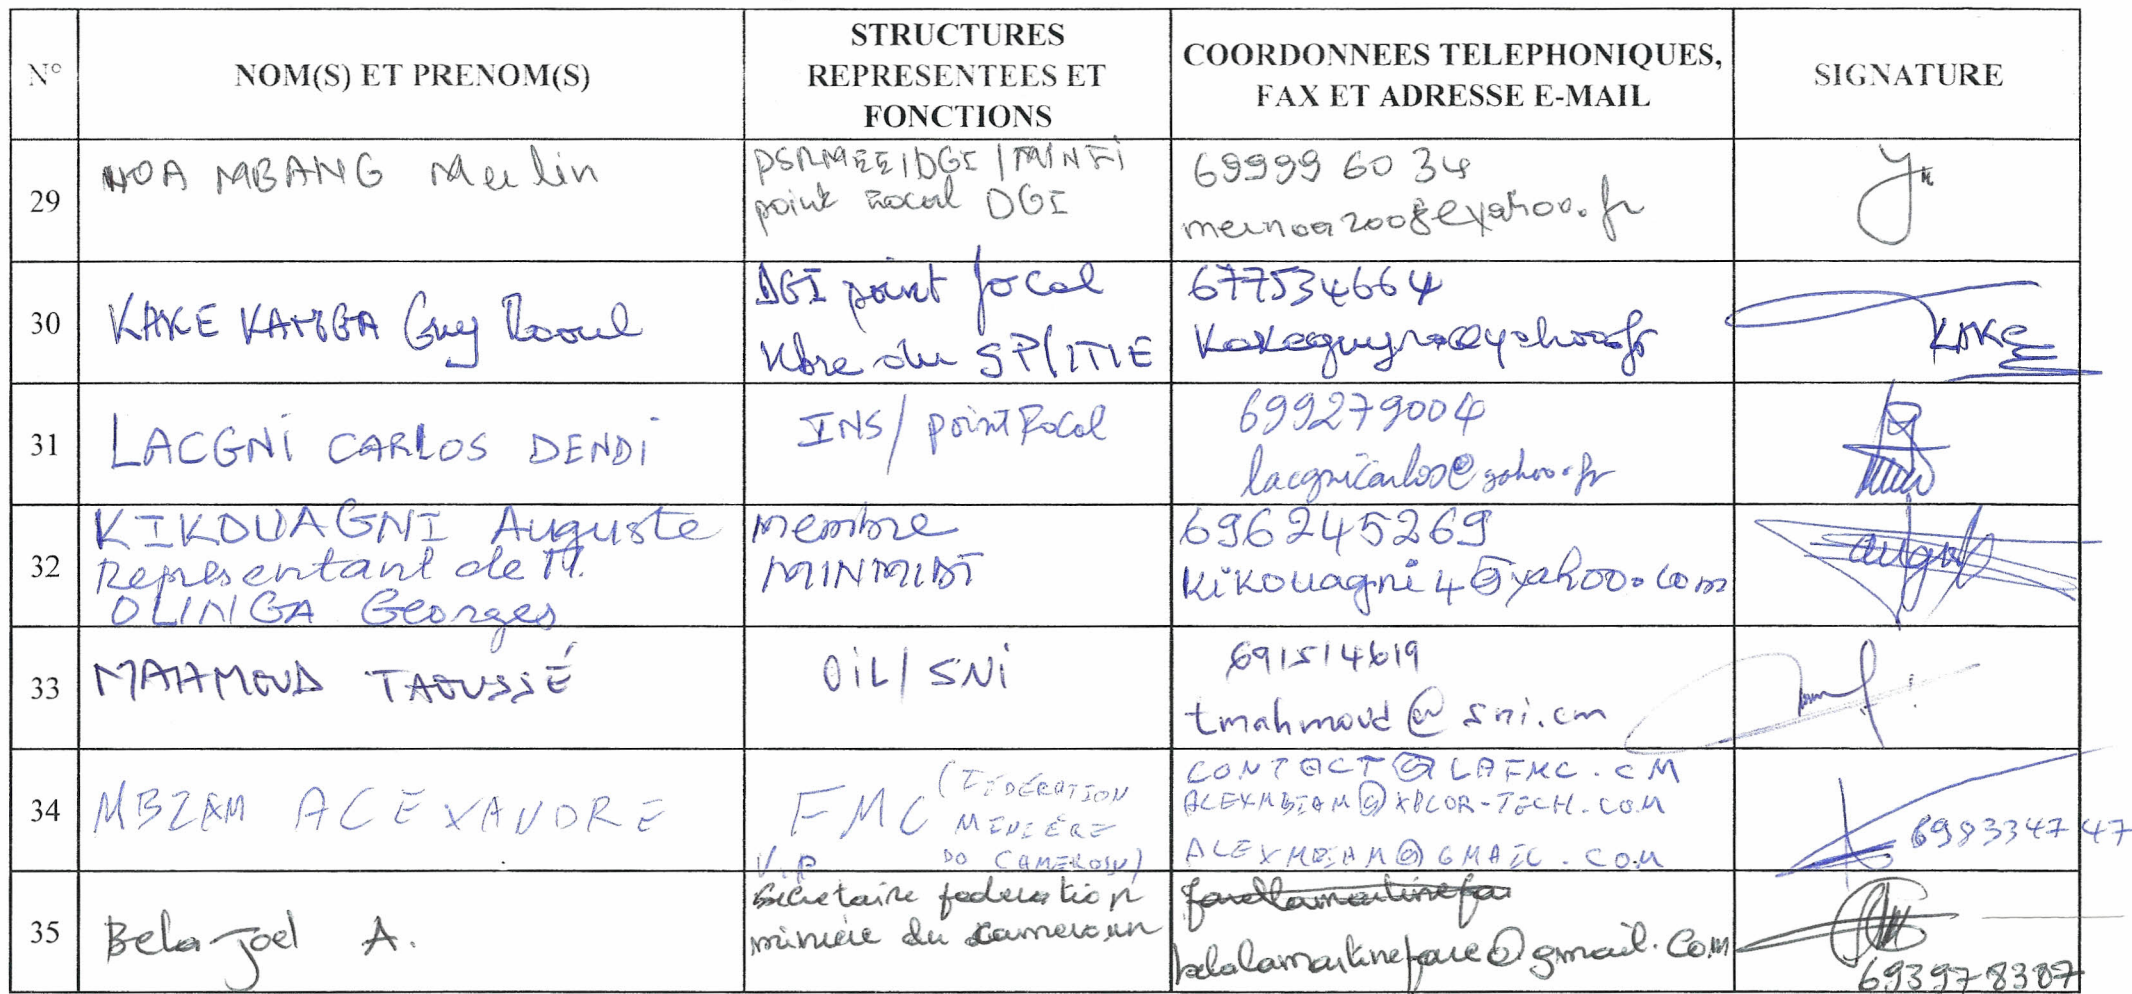 N° NOM(S) ET PRENOM(S) STRUCTURES REPRESENTEES ET FONCTIONS COORDONNEES TELEPHONIQUES, FAX ET ADRESSE E-MAIL SIGNATURE
29 NOA MBANG Merlin
PSRMEE/DGI/MINFI
point focal DGI
69999 60 34
mernoa2008@yahoo.fr
30 KAKE KAMGA Guy Raoul
DGI point focal
Mbre du SP/ITIE
677534664
kakeguyra@yahoo.fr
KAKE
31 LACGNi CARLOS DENDi
INS/ point Focal
699279004
lacgnicarlos@yahoo.fr
32 KIKOUAGNI Auguste
Représentant de M.
OLINGA Georges
membre
MINMIDT
696245269
kikouagni4@yahoo.com
33 MAHMOUD TAOUSSÉ
OiL/ SNi
691514619
tmahmoud@sni.cm
34 MBIAM ALEXANDRE
FMC (FEDERATION
MINIERE
DU CAMEROUN)
V.P
CONTACT@LAFMC.CM
ALEXMBIAM@XPLOR-TECH.COM
ALEXMBIAM@GMAIL.COM
698334747
35 Bela Joel A.
Secretaire federation
miniere du cameroun
@gmail.com
693978387